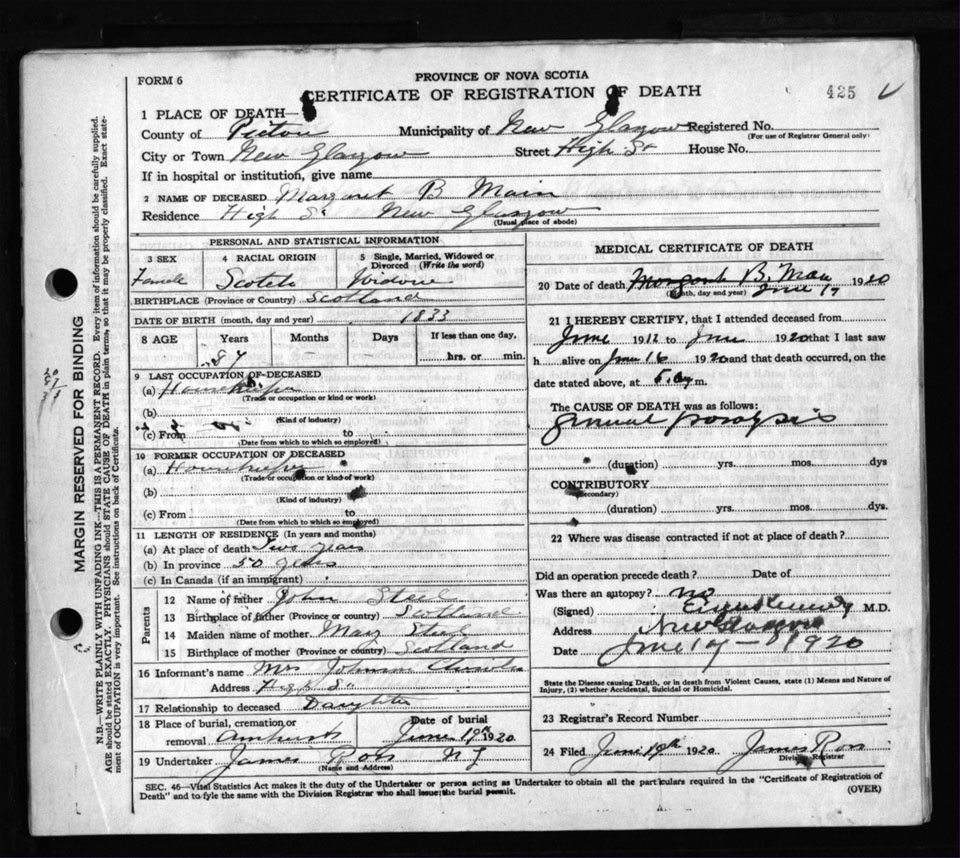 FORM 6
PROVINCE OF NOVA SCOTIA
CERTIFICATE OF REGISTRATION OF DEATH
425
1 PLACE OF DEATH—
County of Pictou Municipality of New Glasgow Registered No.
(For use of Registrar General only)
City or Town New Glasgow Street High St House No.
If in hospital or institution, give name
2 NAME OF DECEASED Margaret B Main
Residence High St New Glasgow
(Usual place of abode)
PERSONAL AND STATISTICAL INFORMATION
3 SEX 4 RACIAL ORIGIN 5 Single, Married, Widowed or Divorced (Write the word)
Female Scotch Widow
BIRTHPLACE (Province or Country) Scotland
DATE OF BIRTH (month, day and year) 1833
8 AGE Years Months Days If less than one day,
87 hrs. or min.
9 LAST OCCUPATION OF DECEASED
(a) Housekeeper
(Trade or occupation or kind or work)
(b)
(Kind of industry)
(c) From to
(Date from which to which so employed)
10 FORMER OCCUPATION OF DECEASED
(a) Housekeeper
(Trade or occupation or kind of work)
(b)
(Kind of industry)
(c) From to
(Date from which to which so employed)
11 LENGTH OF RESIDENCE (In years and months)
(a) At place of death Two years
(b) In province 50 years
(c) In Canada (if an immigrant)
Parents
12 Name of father John Steel
13 Birthplace of father (Province or country) Scotland
14 Maiden name of mother Mary Steel
15 Birthplace of mother (Province or country) Scotland
16 Informant's name Mrs Johnson
Address High St
17 Relationship to deceased Daughter
18 Place of burial, cremation or removal Amherst
Date of burial June 19th 1920
19 Undertaker James Ross N G
(Name and Address)
MEDICAL CERTIFICATE OF DEATH
20 Date of death Margaret B. Main June 17 1920
(Month, day and year)
21 I HEREBY CERTIFY, that I attended deceased from
June 1912 to June 1920 that I last saw
h alive on June 16 1920 and that death occurred, on the
date stated above, at 5. a.m.
The CAUSE OF DEATH was as follows:
General paralysis
(duration) yrs. mos. dys
CONTRIBUTORY
(Secondary)
(duration) yrs. mos. dys.
22 Where was disease contracted if not at place of death?
Did an operation precede death? Date of
Was there an autopsy? No
(Signed) Kennedy M.D.
Address New Glasgow
Date June 17 1920
State the Disease causing Death, or in death from Violent Causes, state (1) Means and Nature of
Injury, (2) whether Accidental, Suicidal or Homicidal.
23 Registrar's Record Number
24 Filed June 19th 1920 James Ross
Division Registrar
SEC. 46—Vital Statistics Act makes it the duty of the Undertaker or person acting as Undertaker to obtain all the particulars required in the "Certificate of Registration of
Death" and to fyle the same with the Division Registrar who shall issue the burial permit.
(OVER)
MARGIN RESERVED FOR BINDING
N.B.—WRITE PLAINLY WITH UNFADING INK—THIS IS A PERMANENT RECORD. Every item of information should be carefully supplied.
AGE should be stated EXACTLY. PHYSICIANS should STATE CAUSE OF DEATH in plain terms, so that it may be properly classified. Exact statement of OCCUPATION is very important. See instructions on back of Certificate.